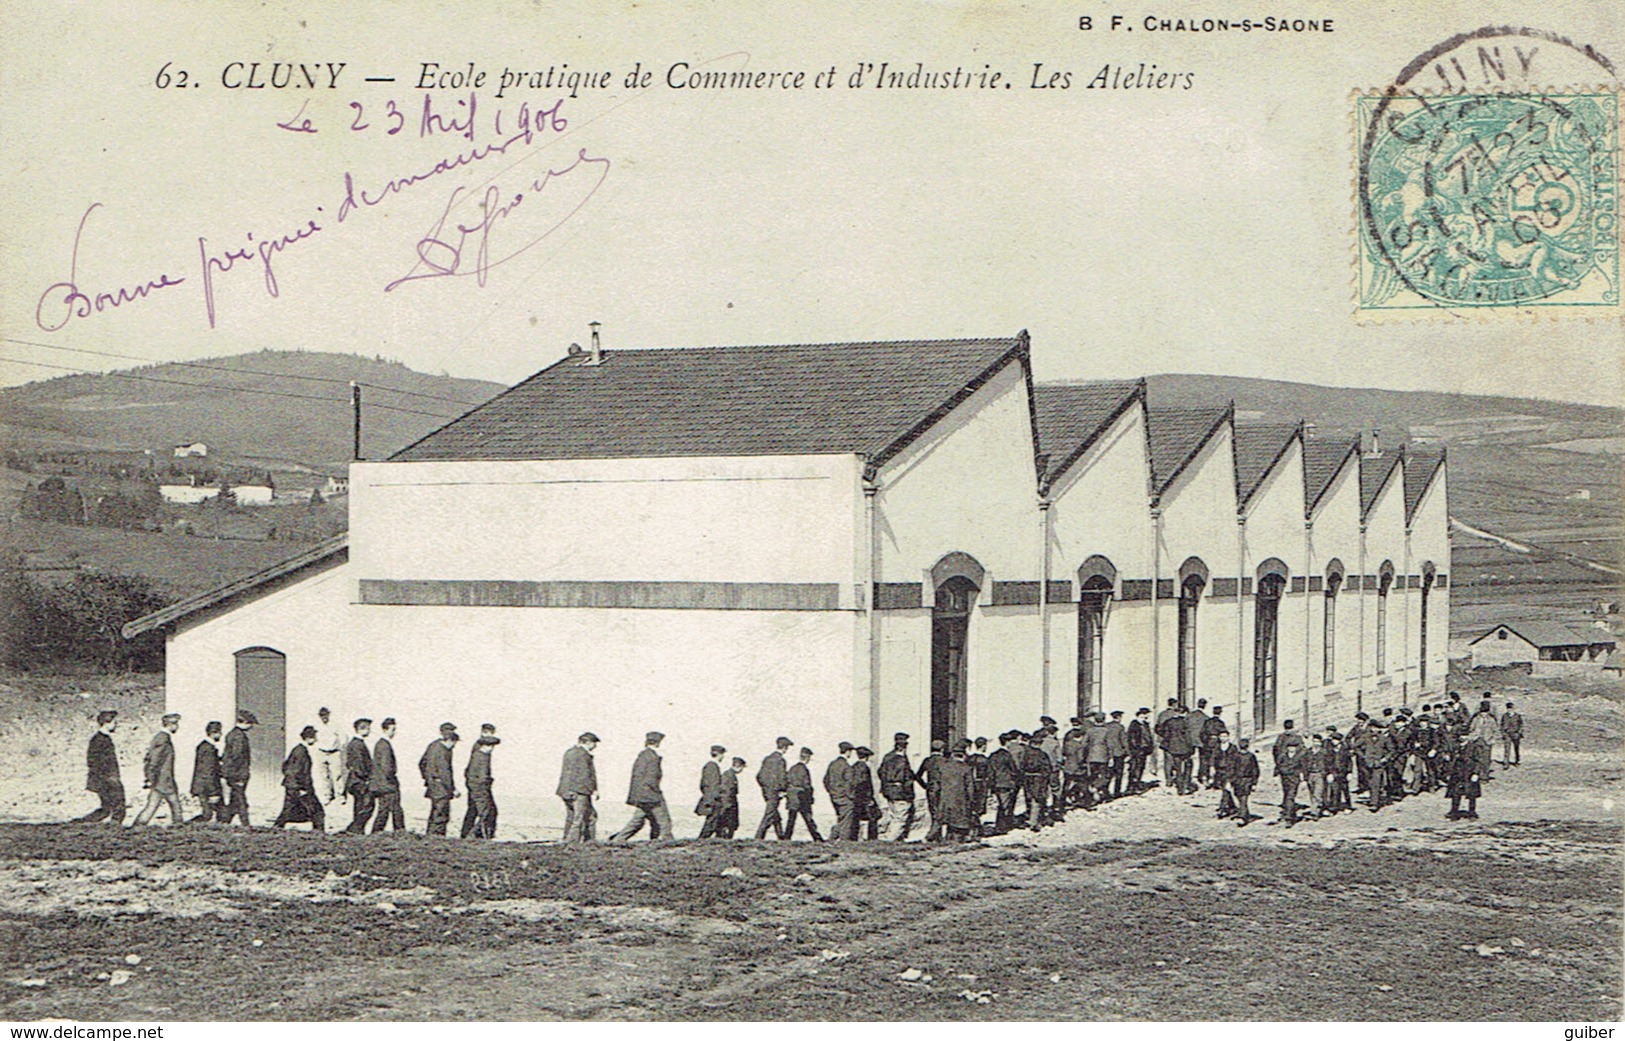 B F. CHALON-S-SAONE
62. CLUNY — Ecole pratique de Commerce et d'Industrie. Les Ateliers
Le 23 Avril 1906
Bonne poignée de mains
CLUNY
7H 23
AVRIL
06
5
POSTES
www.delcampe.net
guiber